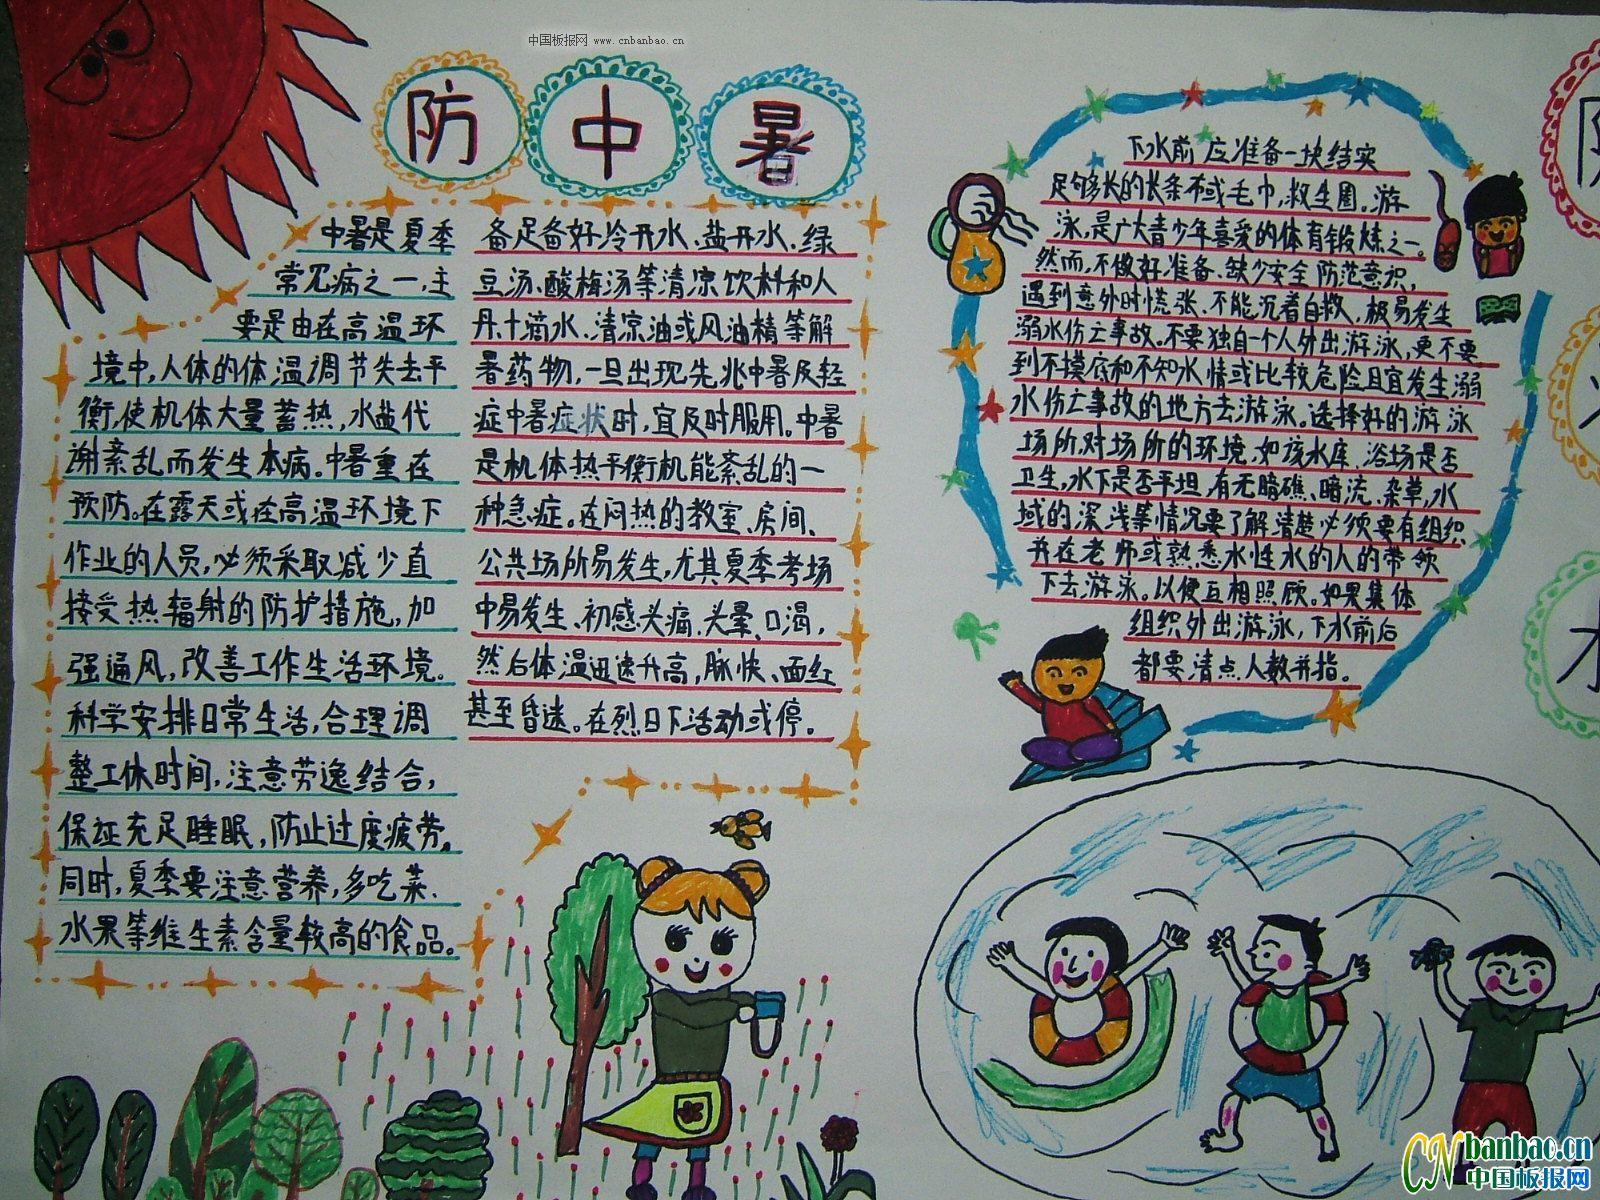 中国板报网 www.cnbanbao.cn
防中暑
中暑是夏季
常见病之一,主
要是由在高温环
境中,人体的体温调节失去平
衡,使机体大量蓄热,水盐代
谢紊乱而发生本病。中暑重在
预防。在露天或在高温环境下
作业的人员,必须采取减少直
接受热辐射的防护措施,加
强通风,改善工作生活环境。
科学安排日常生活,合理调
整工休时间,注意劳逸结合,
保证充足睡眠,防止过度疲劳。
同时,夏季要注意营养,多吃菜、
水果等维生素含量较高的食品。
备足备好冷开水、盐开水、绿
豆汤、酸梅汤等清凉饮料和人
丹、十滴水、清凉油或风油精等解
暑药物,一旦出现先兆中暑及轻
症中暑症状时,宜及时服用。中暑
是机体热平衡机能紊乱的一
种急症。在闷热的教室、房间、
公共场所易发生,尤其夏季考场
中易发生、初感头痛、头晕、口渴,
然后体温迅速升高,脉快、面红
甚至昏迷。在烈日下活动或停。
下水前应准备一块结实
足够长的长条布或毛巾,救生圈。游
泳,是广大青少年喜爱的体育锻炼之一。
然而,不做好准备、缺少安全防范意识,
遇到意外时慌张、不能沉着自救,极易发生
溺水伤亡事故。不要独自一个人外出游泳,更不要
到不摸底和不知水情或比较危险且宜发生溺
水伤亡事故的地方去游泳。选择好的游泳
场所,对场所的环境,如该水库、浴场是否
卫生,水下是否平坦,有无暗礁、暗流、杂草,水
域的深浅等情况要了解清楚必须要有组织
并在老师或熟悉水性水的人的带领
下去游泳。以便互相照顾。如果集体
组织外出游泳,下水前后
都要清点人数并指。
CN banbao.cn
中国板报网